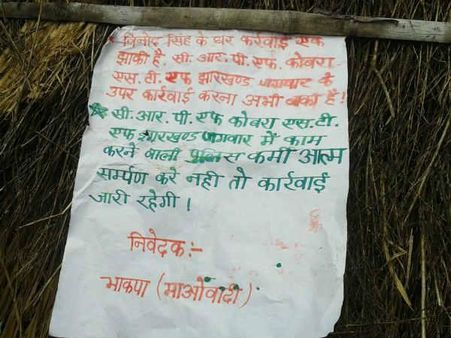 * विनोद सिंह के घर कर्रवाई एक
झाकी है, सी.आर.पी.एफ. कोबरा
एस.टी. एफ झारखण्ड जगवार के
उपर कार्रवाई करना अभी बाका है!
* सी.आर.पी.एफ कोबरा एस.टी.
एफ झारखण्ड जगवार में काम
करने वाली पुलिस कर्मी आत्म
सर्म्पण करे नही तो कार्रवाई
जारी रहेगी।
निवेदक:-
भाकपा (माओवादी)